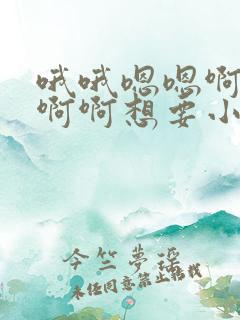 哦哦嗯嗯啊
啊啊想要小
今竺夢瑶
未经同意禁止转载